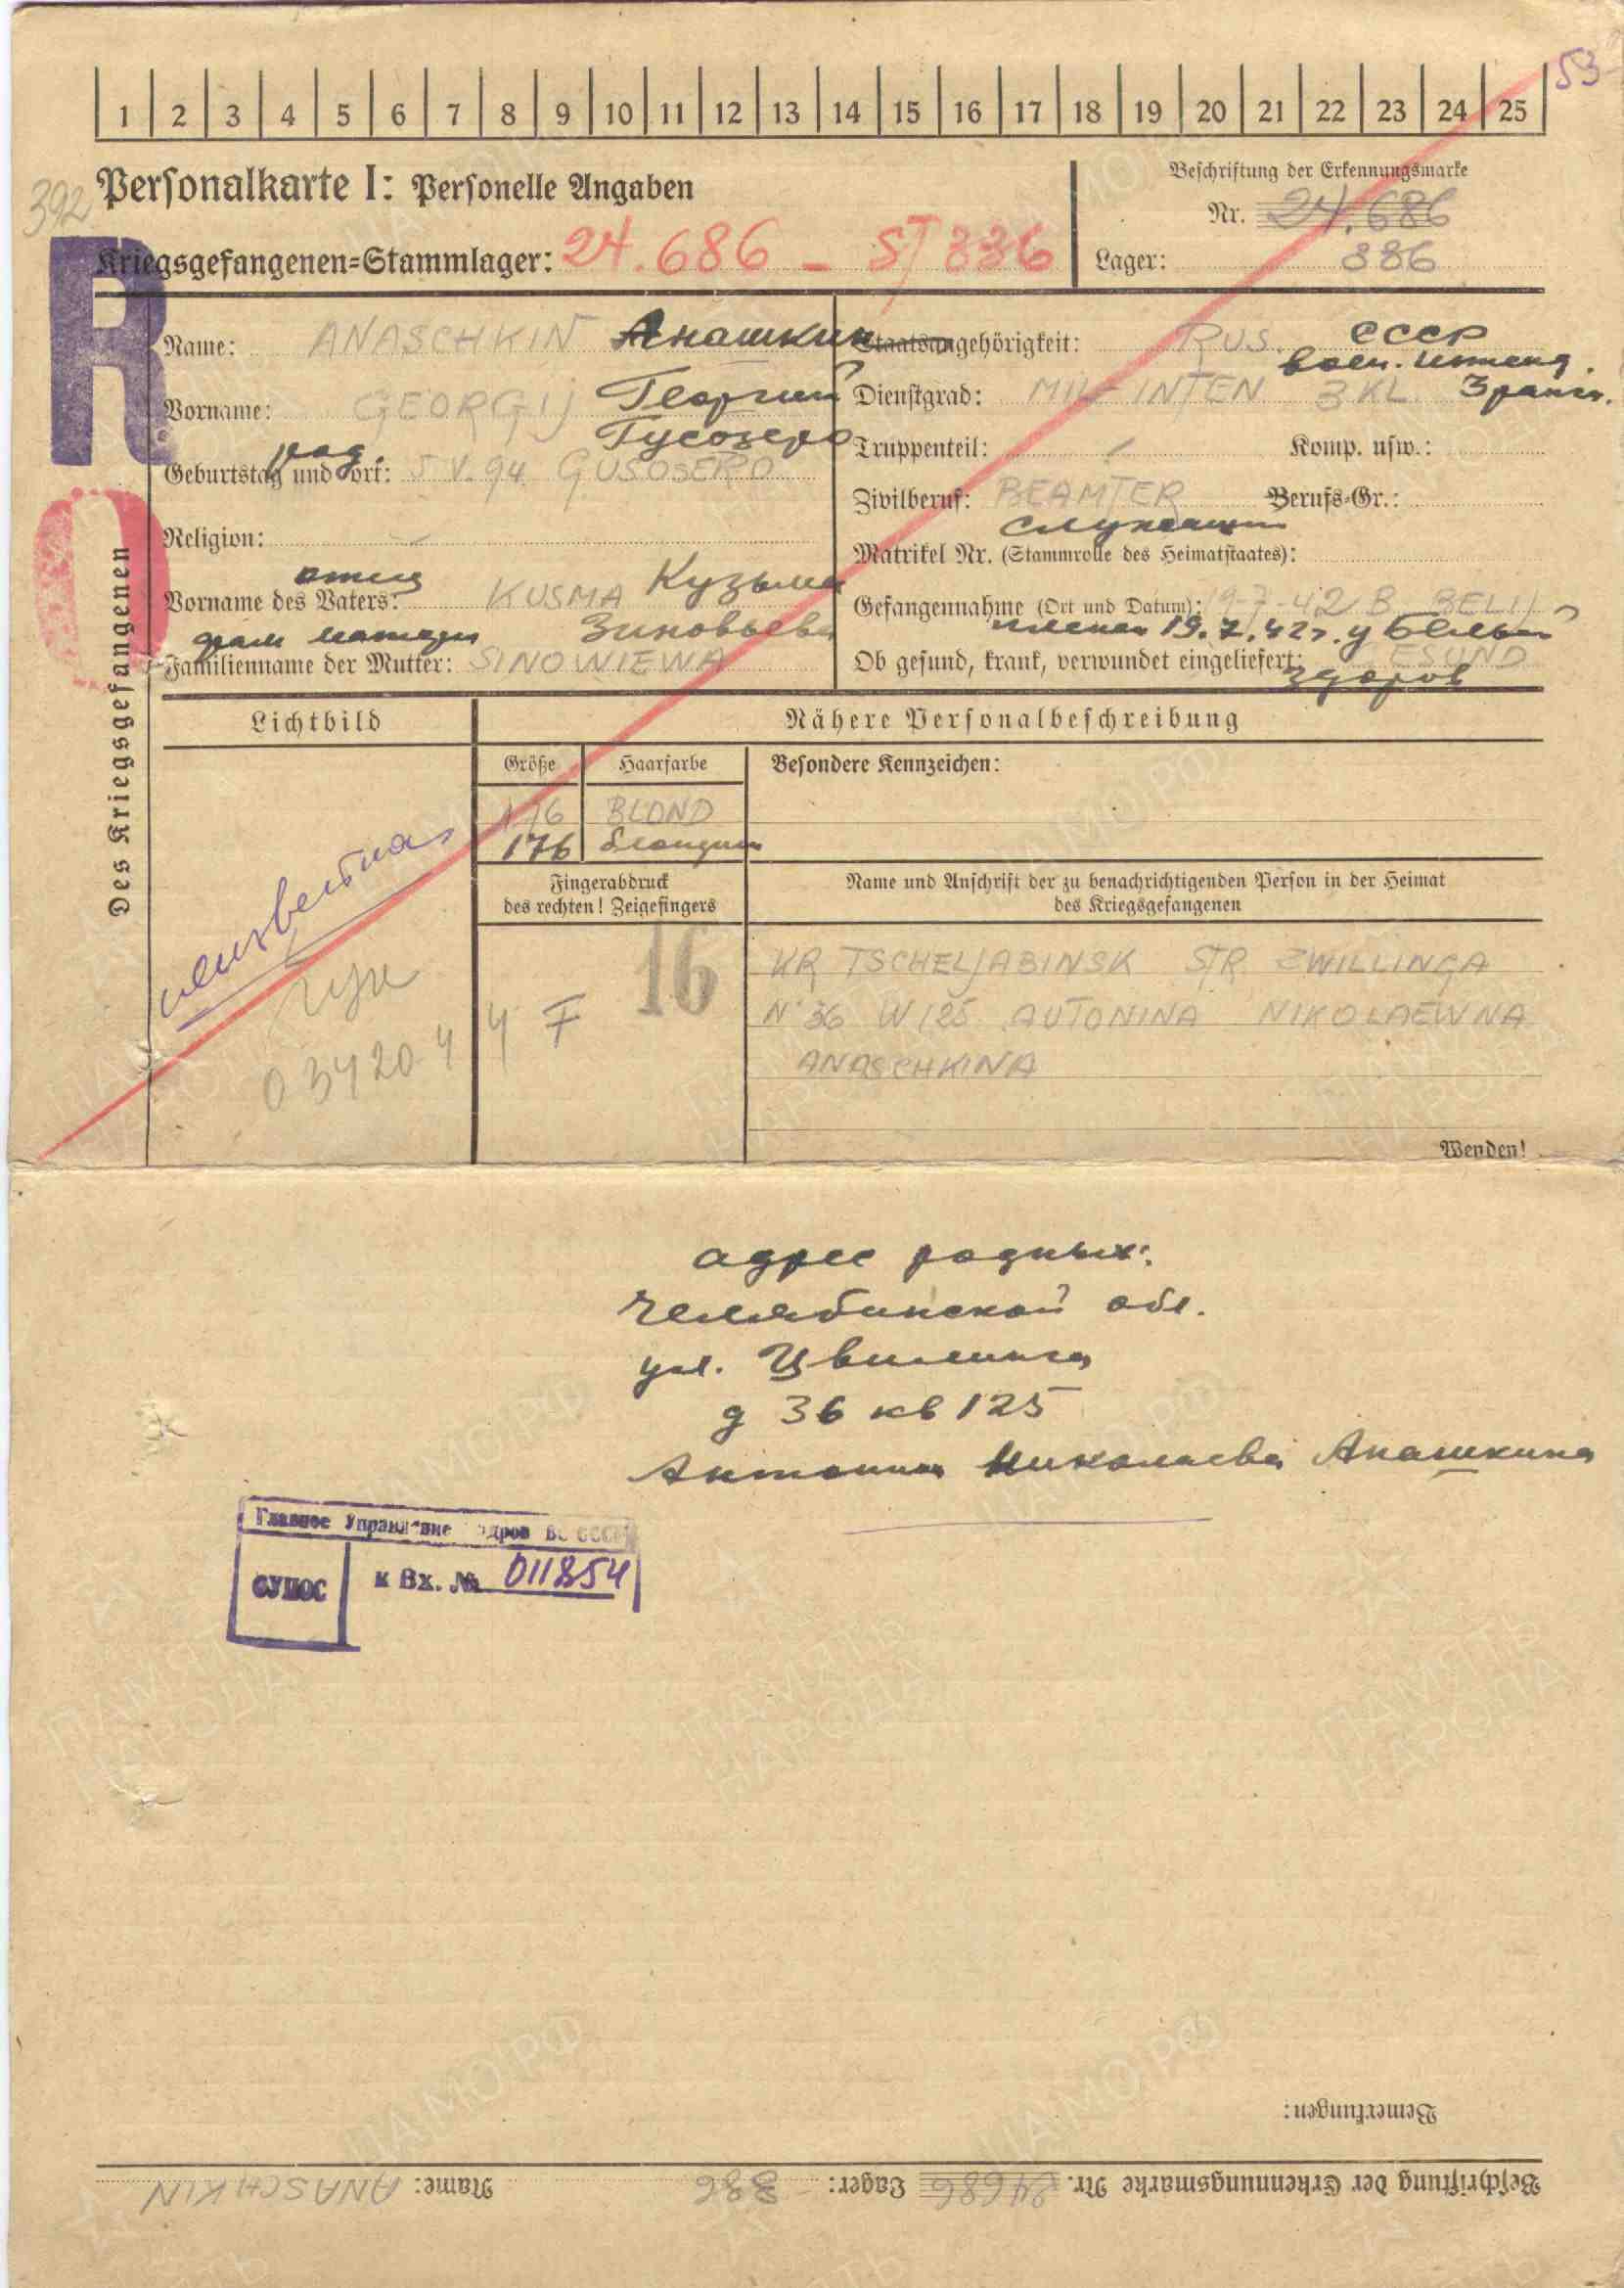 53
1 2 3 4 5 6 7 8 9 10 11 12 13 14 15 16 17 18 19 20 21 22 23 24 25
392
Personalkarte I: Personelle Angaben
Beschriftung der Erkennungsmarke
Nr. 24.686
Kriegsgefangenen=Stammlager: 24.686 - ST 336
Lager: 336
R
Des Kriegsgefangenen
Name: ANASCHKIN Анашкин
Vorname: GEORGIJ Георгий
Гусозеро
род.
Geburtstag und =ort: 5 V. 94 GUSOSERO
Religion:
отец
Vorname des Vaters: KUSMA Кузьма
матери Зиновьева
Familienname der Mutter: SINOWIEWA
Staatsangehörigkeit: RUS. СССР
воен. интенд.
Dienstgrad: MIL-INTEN 3 KL. 3 ранга.
Truppenteil: Komp. usw.:
Zivilberuf: BEAMTER Berufs=Gr.:
служащий
Matrikel Nr. (Stammrolle des Heimatstaates):
Gefangennahme (Ort und Datum): 19-7-42 B. BELIJ
пленен 19.7.42г. у Белый
Ob gesund, krank, verwundet eingeliefert: GESUND
здоров
Lichtbild
Nähere Personalbeschreibung
Größe Haarfarbe Besondere Kennzeichen:
176 BLOND
176 блондин
неизвестная
034204
Fingerabdruck
des rechten! Zeigefingers
16
4 F
Name und Anschrift der zu benachrichtigenden Person in der Heimat
des Kriegsgefangenen
KR TSCHELJABINSK STR ZWILLINGA
N° 36 W 125 AUTONINA NIKOLAEWNA
ANASCHKINA
Wenden!
адрес родных:
Челябинской обл.
ул. Цвилинга
д 36 кв 125
Антонина Николаева Анашкина
Главное Управление Кадров ВС СССР
СУПОС
к Вх. № 011854
Bemerkungen:
Beschriftung der Erkennungsmarke Nr. 24686 Lager: 336 Name: ANASCHKIN
ПАМЯТЬ НАРОДА
ПАМО.РФ